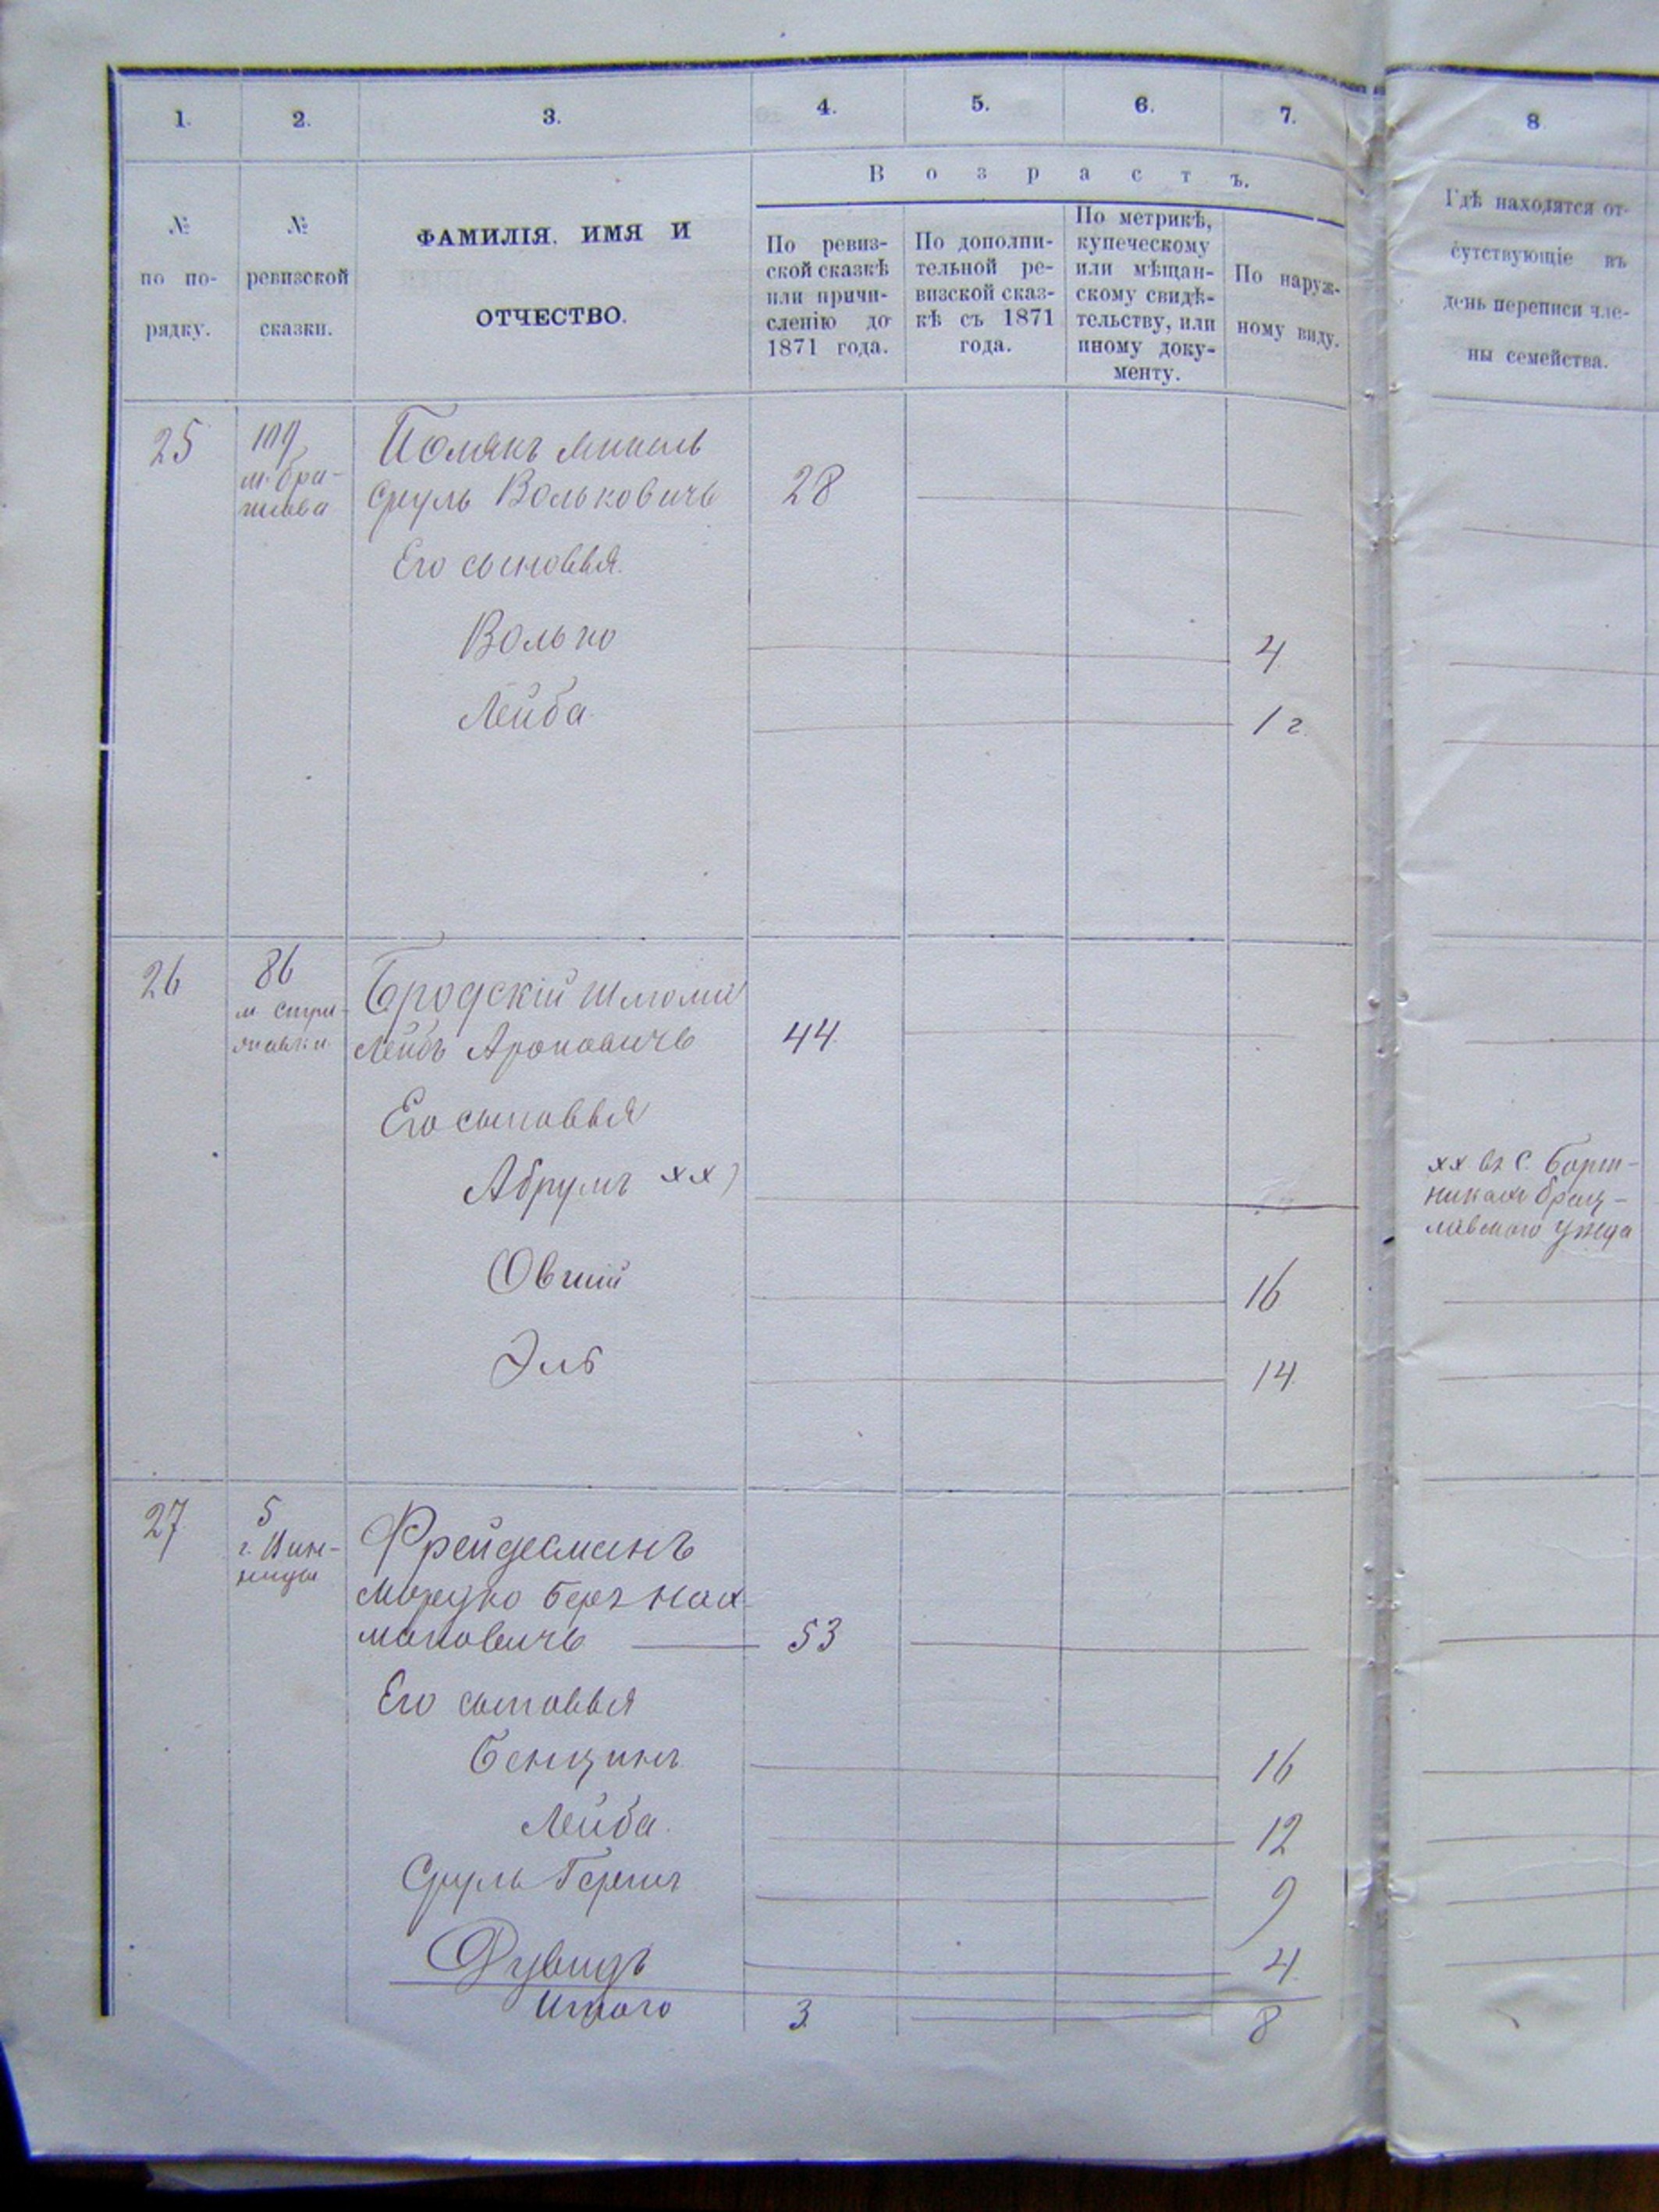 1.
2.
3.
4.
5.
6.
7.
8
№
по по-
рядку.
№
ревизской
сказки.
ФАМИЛІЯ, ИМЯ И
ОТЧЕСТВО.
Возрастъ.
По ревиз-
ской сказкѣ
или причи-
сленію до
1871 года.
По дополни-
тельной ре-
визской сказ-
кѣ съ 1871
года.
По метрикѣ,
купеческому
или мѣщан-
скому свидѣ-
тельству, или
иному доку-
менту.
По наруж-
ному виду.
Гдѣ находятся от-
сутствующіе въ
день переписи чле-
ны семейства.
25
109
м. Бра-
илова
Сруль Вольковичь
28
Его сыновья.
Волько
4
Лейба
1 г.
26
86
м
Бродскій Шлома
Лейбъ Ароновичь
44
Его сыновья
Абрумъ хх)
хх въ с. Борт-
никахъ Брац-
лавскаго уѣзда
Овшій
16
Эль
14
27
5
г. Вин-
ницы
Фрейдесманъ
Мордко Беръ Нах-
мановичь
53
Его сыновья
Бенционъ
16
Лейба
12
Сруль Гершъ
9
Дувидъ
4
Итого
3
8